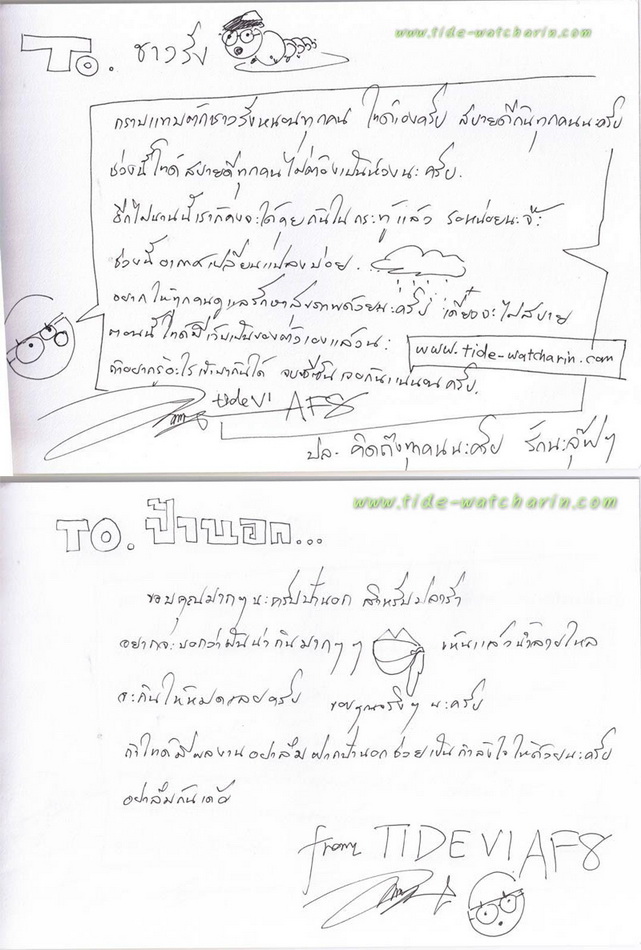 www.tide-watcharin.com
TO. ชาวรัง
กราบแทบตักชาวรังหนอนทุกคน ไทด์เองครับ สบายดีกันทุกคนนะครับ
ช่วงนี้ไทด์สบายดีทุกคนไม่ต้องเป็นห่วงนะครับ.
อีกไม่นานนี้เราก็คงจะได้คุยกันในกระทู้แล้ว รอหน่อยนะจ๊ะ
ช่วงนี้อากาศเปลี่ยนแปลงบ่อย.
อยากให้ทุกคนดูแลรักษาสุขภาพด้วยนะครับ เดี๋ยวจะไม่สบาย
ตอนนี้ไทด์มีเว็บเป็นของตัวเองแล้วนะ www.tide-watcharin.com
ถ้าอยากรู้อะไรเข้ามากันได้ จบซีซั่นเจอกันแน่นอนครับ.
tide V1 AF8
ปล. คิดถึงทุกคนนะครับ รักนะจุ๊บๆ
www.tide-watcharin.com
TO. ป้านอก...
ขอบคุณมากๆนะครับป้านอก สำหรับปลาร้า
อยากจะบอกว่ามันน่ากินมากๆๆ เห็นแล้วน้ำลายไหล
จะกินให้หมดเลยครับ ขอบคุณจริงๆนะครับ
ถ้าไทด์มีผลงานอย่าลืมฝากป้านอกช่วยเป็นกำลังใจให้ด้วยนะครับ
อย่าลืมกันเด้อ
from TIDE V1 AF8